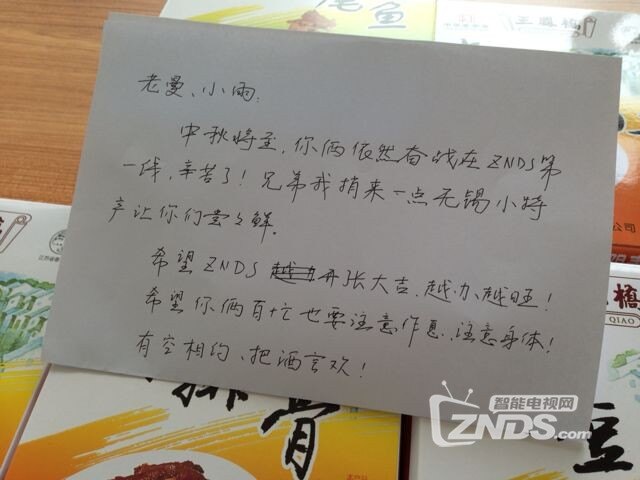 鱼
三鳳桥
老曼、小雨:
中秋将至,你俩依然奋战在ZNDS第
一线,辛苦了!兄弟我捎来一点无锡小特
产让你们尝尝鲜。
希望ZNDS 越办 开张大吉、越办越旺!
希望你俩百忙也要注意作息、注意身体!
有空相约、把酒言欢!
公司
桥
QIAO
排骨
豆
智能电视网
ZNDS.com